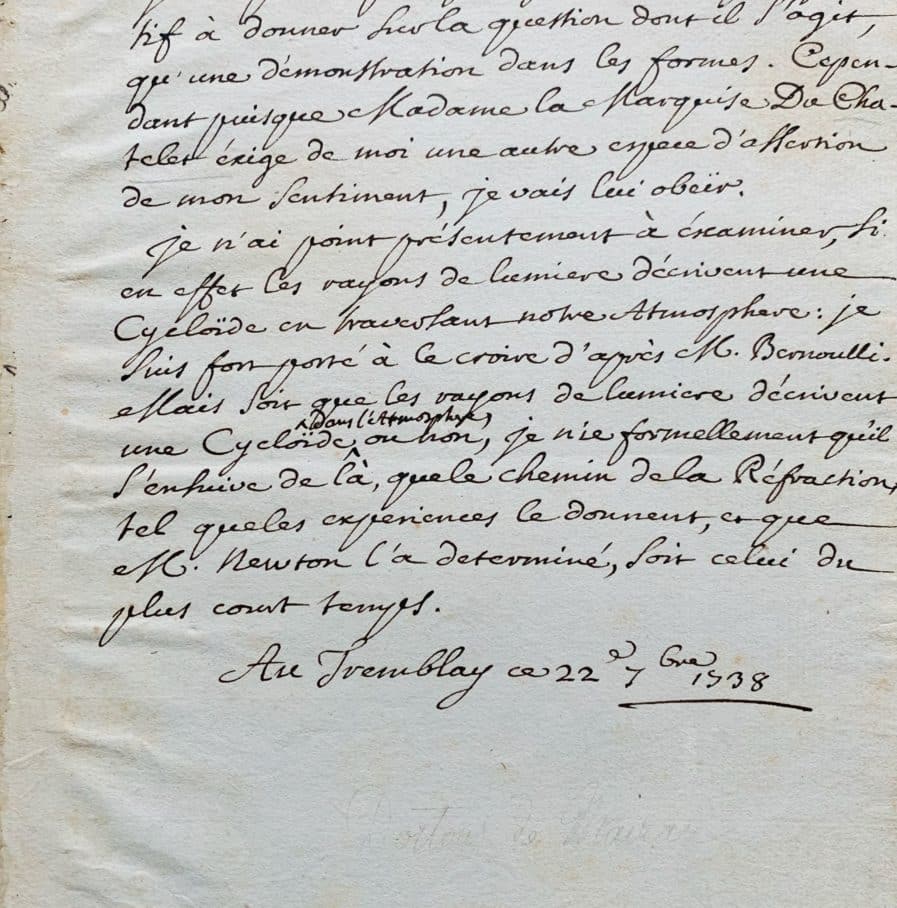 tif à donner sur la question dont il s'agit,
qu'une démonstration dans les formes. Cepen-
dant puisque Madame la Marquise Du Cha-
telet éxige de moi une autre espece d'assertion
de mon sentiment, je vais lui obeïr.
je n'ai point présentement à éxaminer, si
en effet les rayons de lumiere décrivent une
Cycloïde en traversant notre Atmosphere: je
suis fort porté à le croire d'après M. Bernoulli.
Mais soit que les rayons de lumiere décrivent
^ dans l'Atmosphere,
une Cycloïde, ou non, je nie formellement qu'il
s'ensuive de là, que le chemin de la Réfraction,
tel que les experiences le donnent, et que
M. Newton l'a determiné, soit celui du
plus court temps.
Au Tremblay ce 22e 7bre 1738
Dortous de Mairan